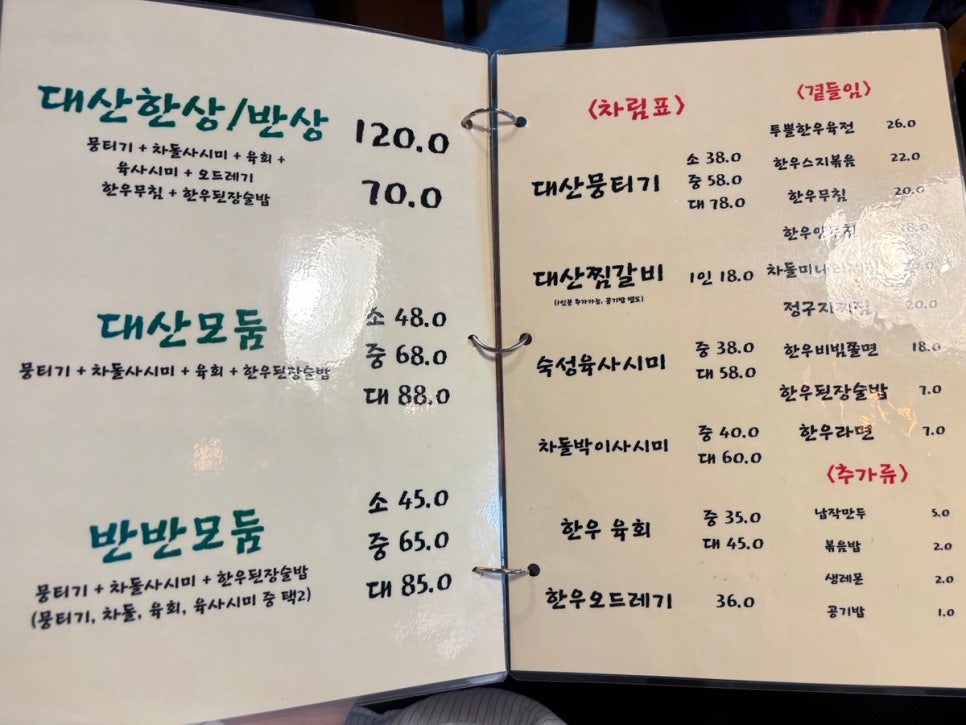 대산한상/반상
뭉터기 + 차돌사시미 + 육회 +
육사시미 + 오드레기
한우무침 + 한우된장술밥
120.0
70.0
대산모둠
뭉터기 + 차돌사시미 + 육회 + 한우된장술밥
소 48.0
중 68.0
대 88.0
반반모둠
뭉터기 + 차돌사시미 + 한우된장술밥
(뭉터기, 차돌, 육회, 육사시미 중 택2)
소 45.0
중 65.0
대 85.0
<차림표>
대산뭉터기
소 38.0
중 58.0
대 78.0
대산찜갈비 1인 18.0
(1인분 추가가능, 공기밥 별도)
숙성육사시미
중 38.0
대 58.0
차돌박이사시미
중 40.0
대 60.0
한우 육회
중 35.0
대 45.0
한우오드레기 36.0
<곁들임>
투뿔한우육전 26.0
한우스지볶음 22.0
한우무침 20.0
정구지찌짐 20.0
한우비빔쫄면 18.0
한우된장술밥 7.0
한우라면 7.0
<추가류>
납작만두 5.0
볶음밥 2.0
생레몬 2.0
공기밥 1.0